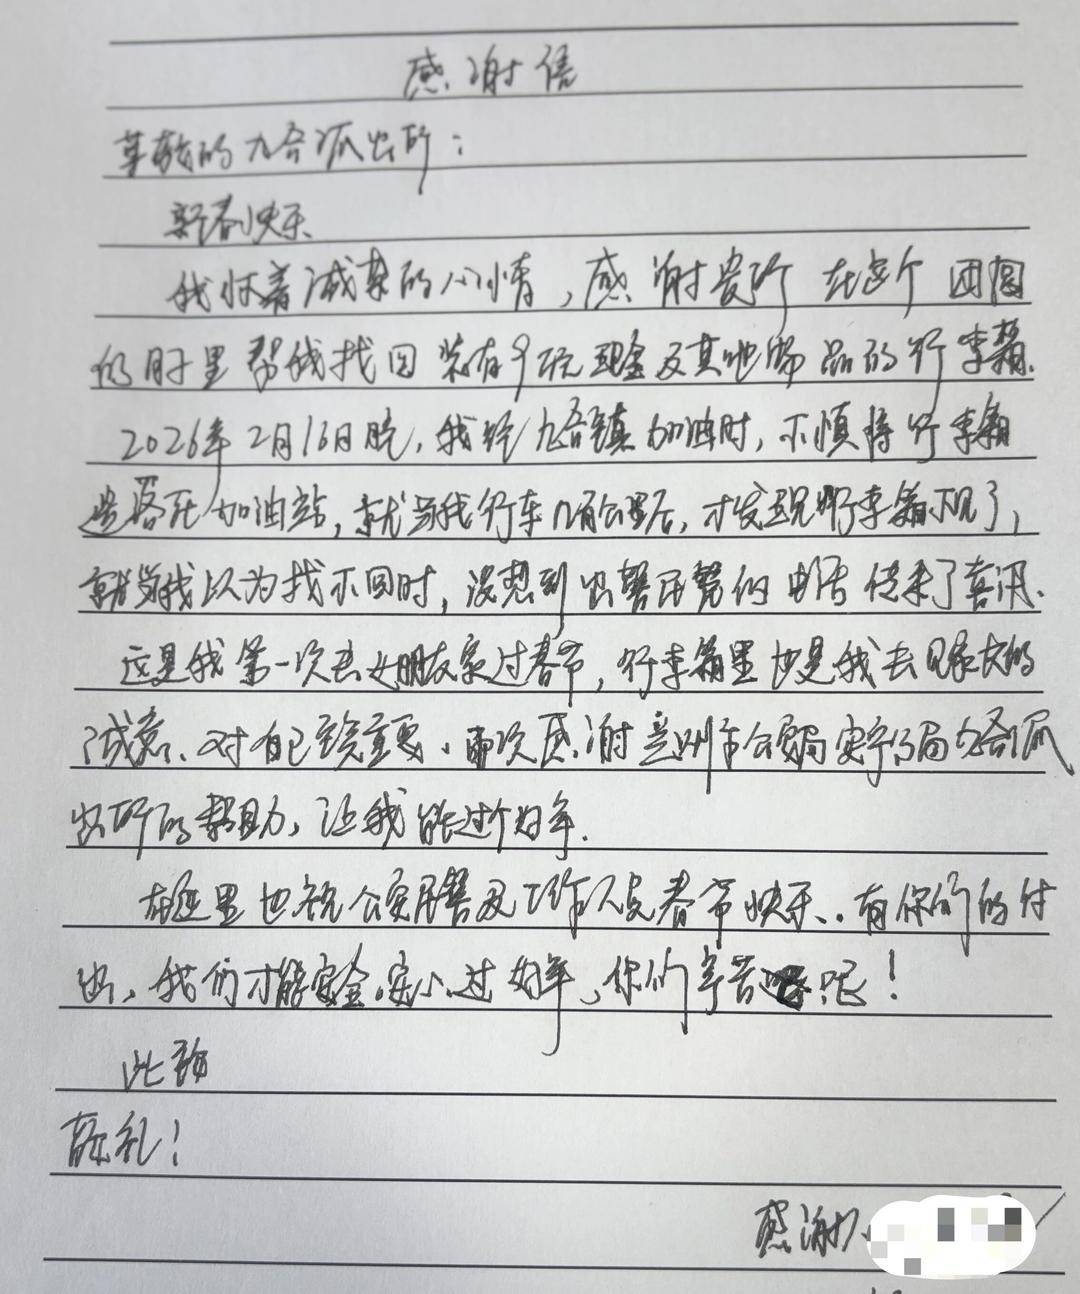 感谢信
尊敬的九合派出所：
新春快乐
我怀着诚挚的心情，感谢贵所在这个团圆
的时里帮我找回装有9万元现金及其他物品的行李箱.
2026年2月16日晚，我经九合镇加油时，不慎将行李箱
遗落在加油站，就当我行车几百公里后，才发现行李箱不见了，
就当我以为找不回时，没想到出警民警的电话传来了喜讯.
这是我第一次去女朋友家过春节，行李箱里也是我去见家长的
诚意、对自己至关重要、再次感谢兰州市公安局安宁分局九合派
出所的帮助，让我能过个好年.
在这里也祝公安民警及工作人员春节快乐、.有你们的付
出，我们才能安全.安心.过好年，你们辛苦呢！
此致
敬礼！
感谢人.